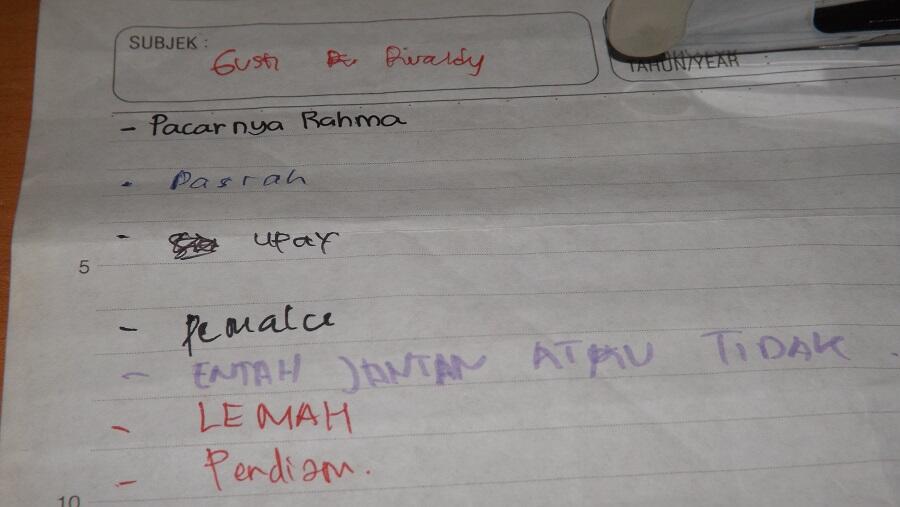 SUBJEK :
Gusti Rivaldy
TAHUN/YEAR :
- Pacarnya Rahma
- Pasrah
- upay
5
- Pemalu
- ENTAH JANTAN ATAU TIDAK .
- LEMAH
- Pendiam.
10